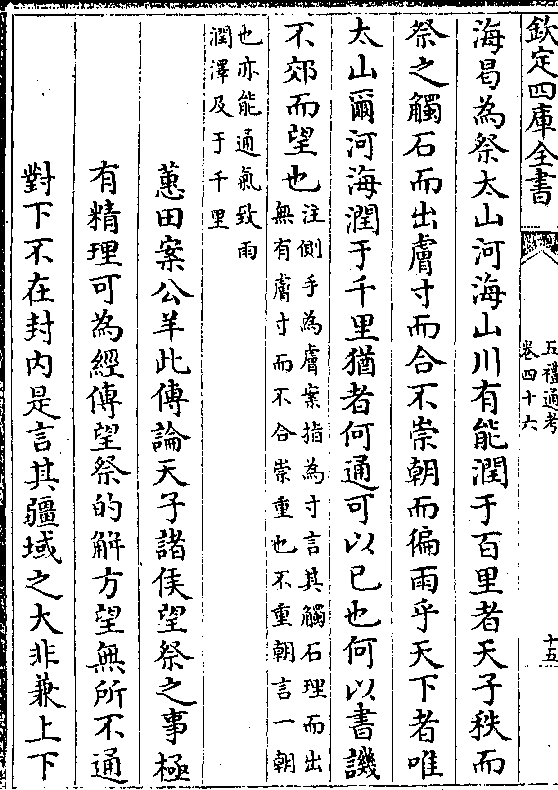 欽定四庫全書
五禮通考
卷四十六
十五
海曷為祭太山河海山川有能潤于百里者天子秩而
祭之觸石而出膚寸而合不崇朝而徧雨乎天下者唯
太山爾河海潤于千里猶者何通可以已也何以書譏
不郊而望也注側手為膚案指為寸言其觸石理而出
無有膚寸而不合崇重也不重朝言一朝
也亦能通氣致雨
潤澤及于千里
蕙田案公羊此傳論天子諸侯望祭之事極
有精理可為經傳望祭的解方望無所不通
對下不在封内是言其疆域之大非兼上下